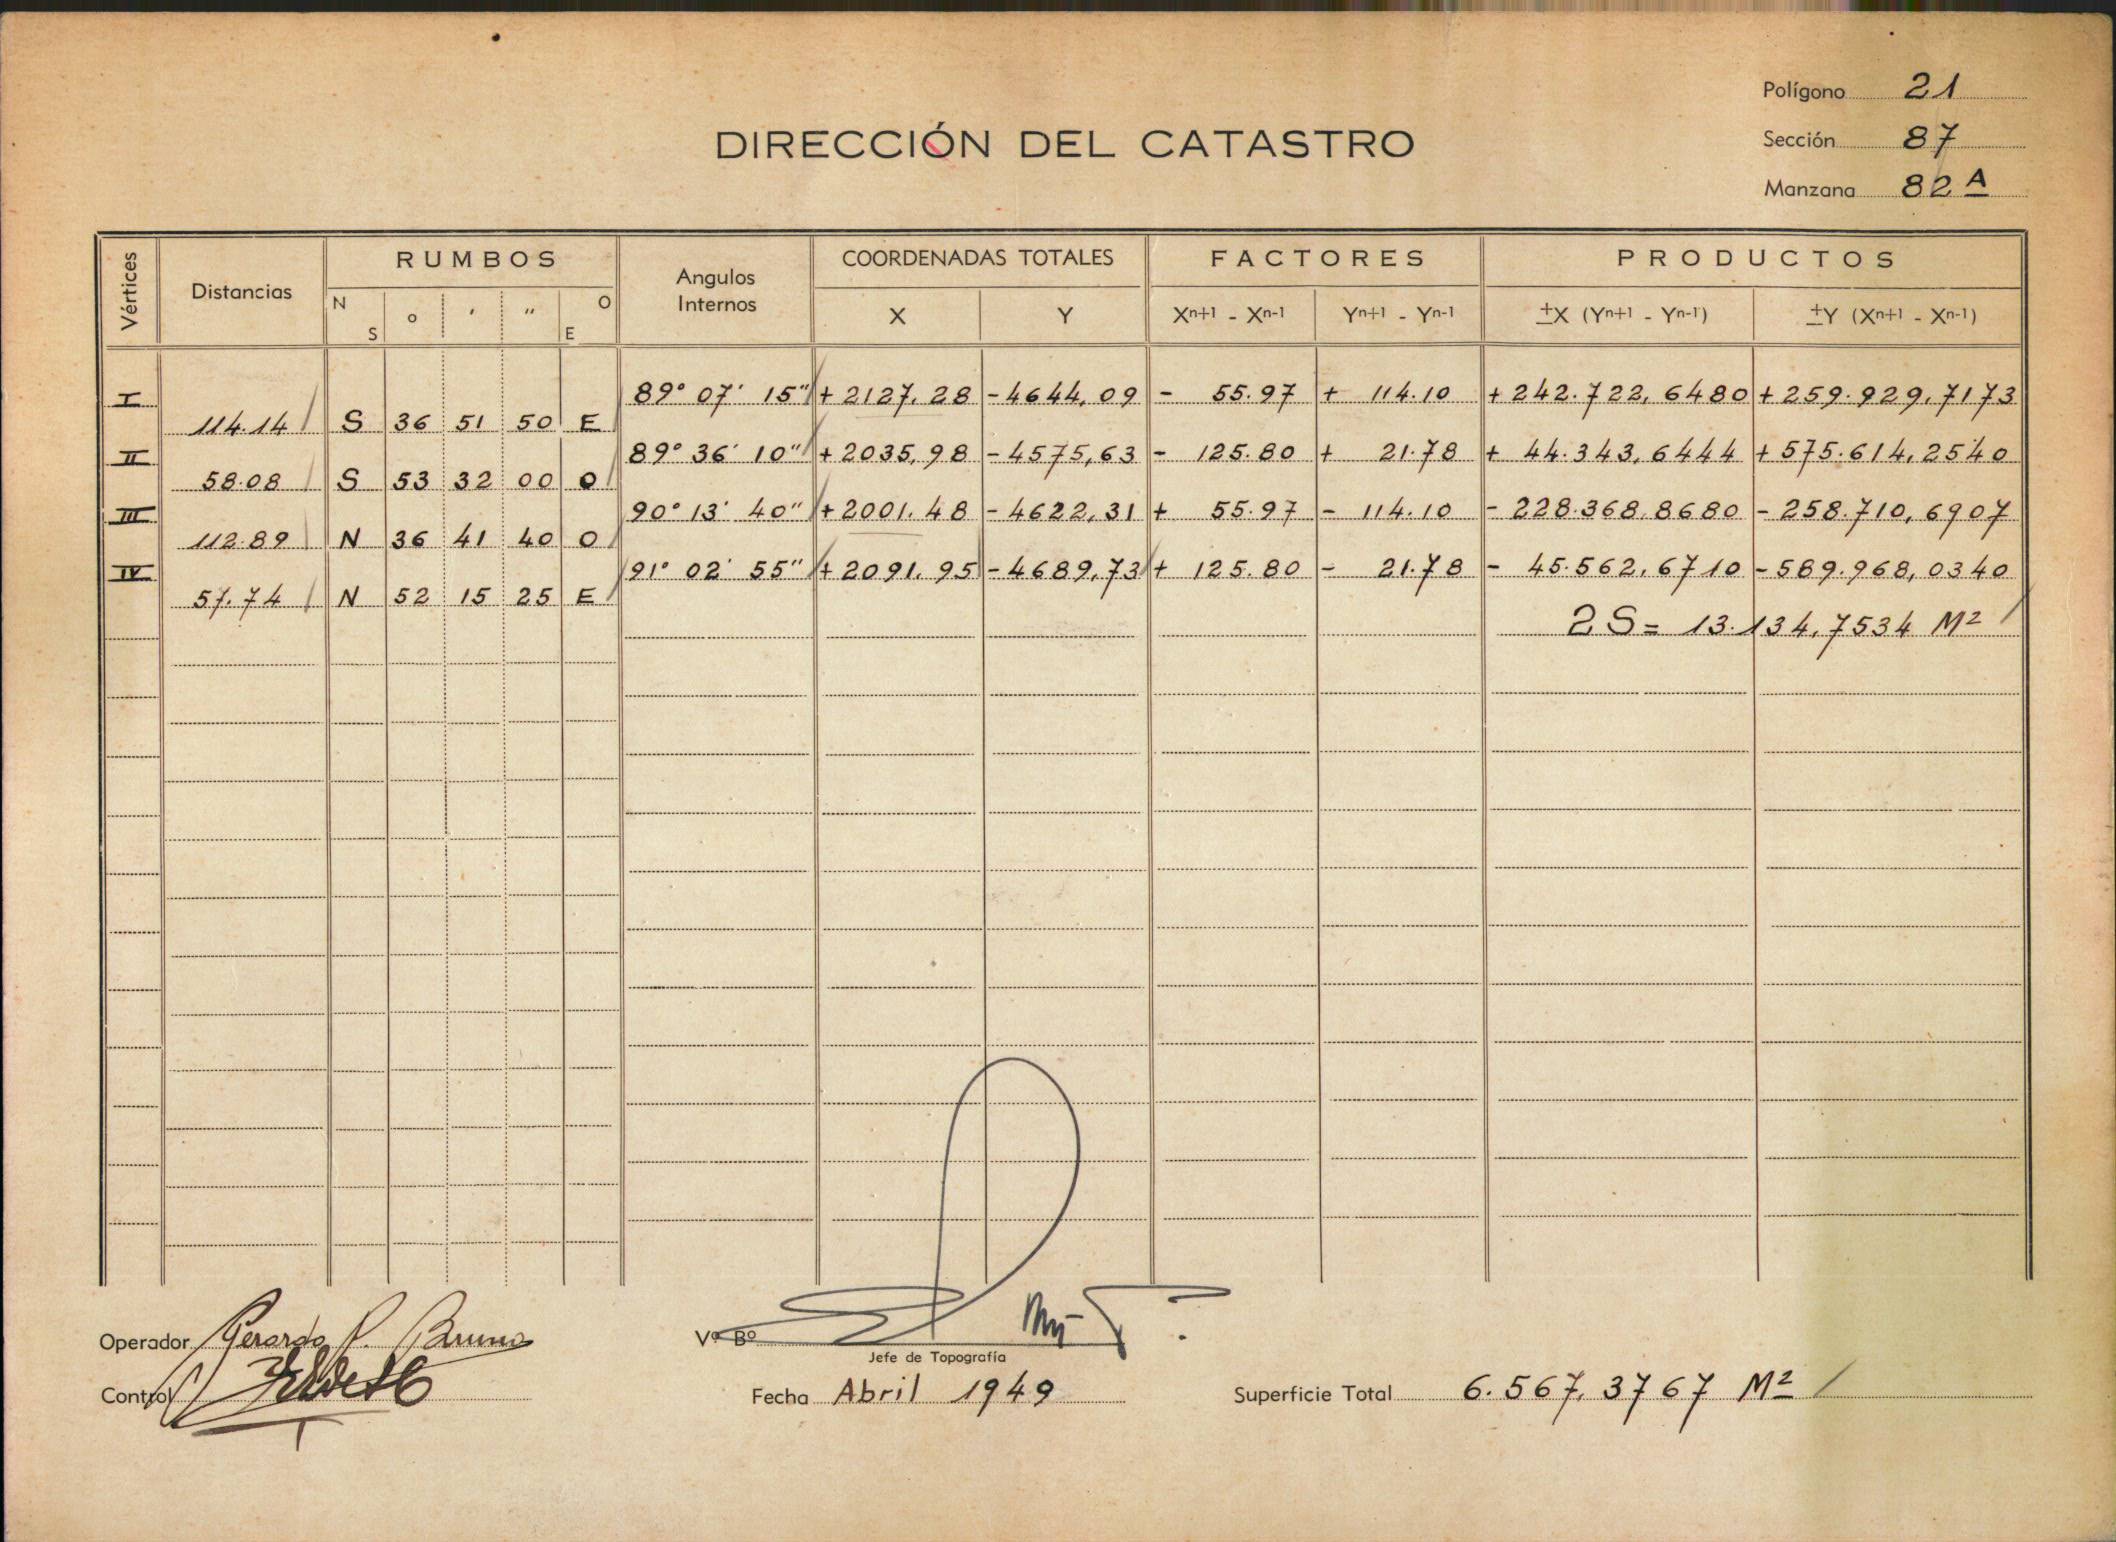 Polígono 21
DIRECCIÓN DEL CATASTRO
Sección 87
Manzana 82 A
Vértices Distancias RUMBOS Angulos Internos COORDENADAS TOTALES FACTORES PRODUCTOS
N S o ' " O E X Y Xn+1 - Xn-1 Yn+1 - Yn-1 ±X (Yn+1 - Yn-1) ±Y (Xn+1 - Xn-1)
I 89° 07' 15" +2127.28 -4644,09 - 55.97 + 114.10 +242.722,6480 +259.929,7173
114.14 S 36 51 50 E
II 89° 36' 10" +2035,98 -4575,63 - 125.80 + 21.78 + 44.343,6444 +575.614,2540
58.08 S 53 32 00 O
III 90° 13' 40" +2001.48 -4622,31 + 55.97 - 114.10 - 228.368.8680 - 258.710,6907
112.89 N 36 41 40 O
IV 91° 02' 55" +2091.95 -4689,73 + 125.80 - 21.78 - 45.562,6710 -589.968,0340
57.74 N 52 15 25 E
2S = 13.134,7534 M²
Operador Gerardo P. Bruno
Vº Bº
Jefe de Topografía
Control
Fecha Abril 1949
Superficie Total 6.567,3767 M²